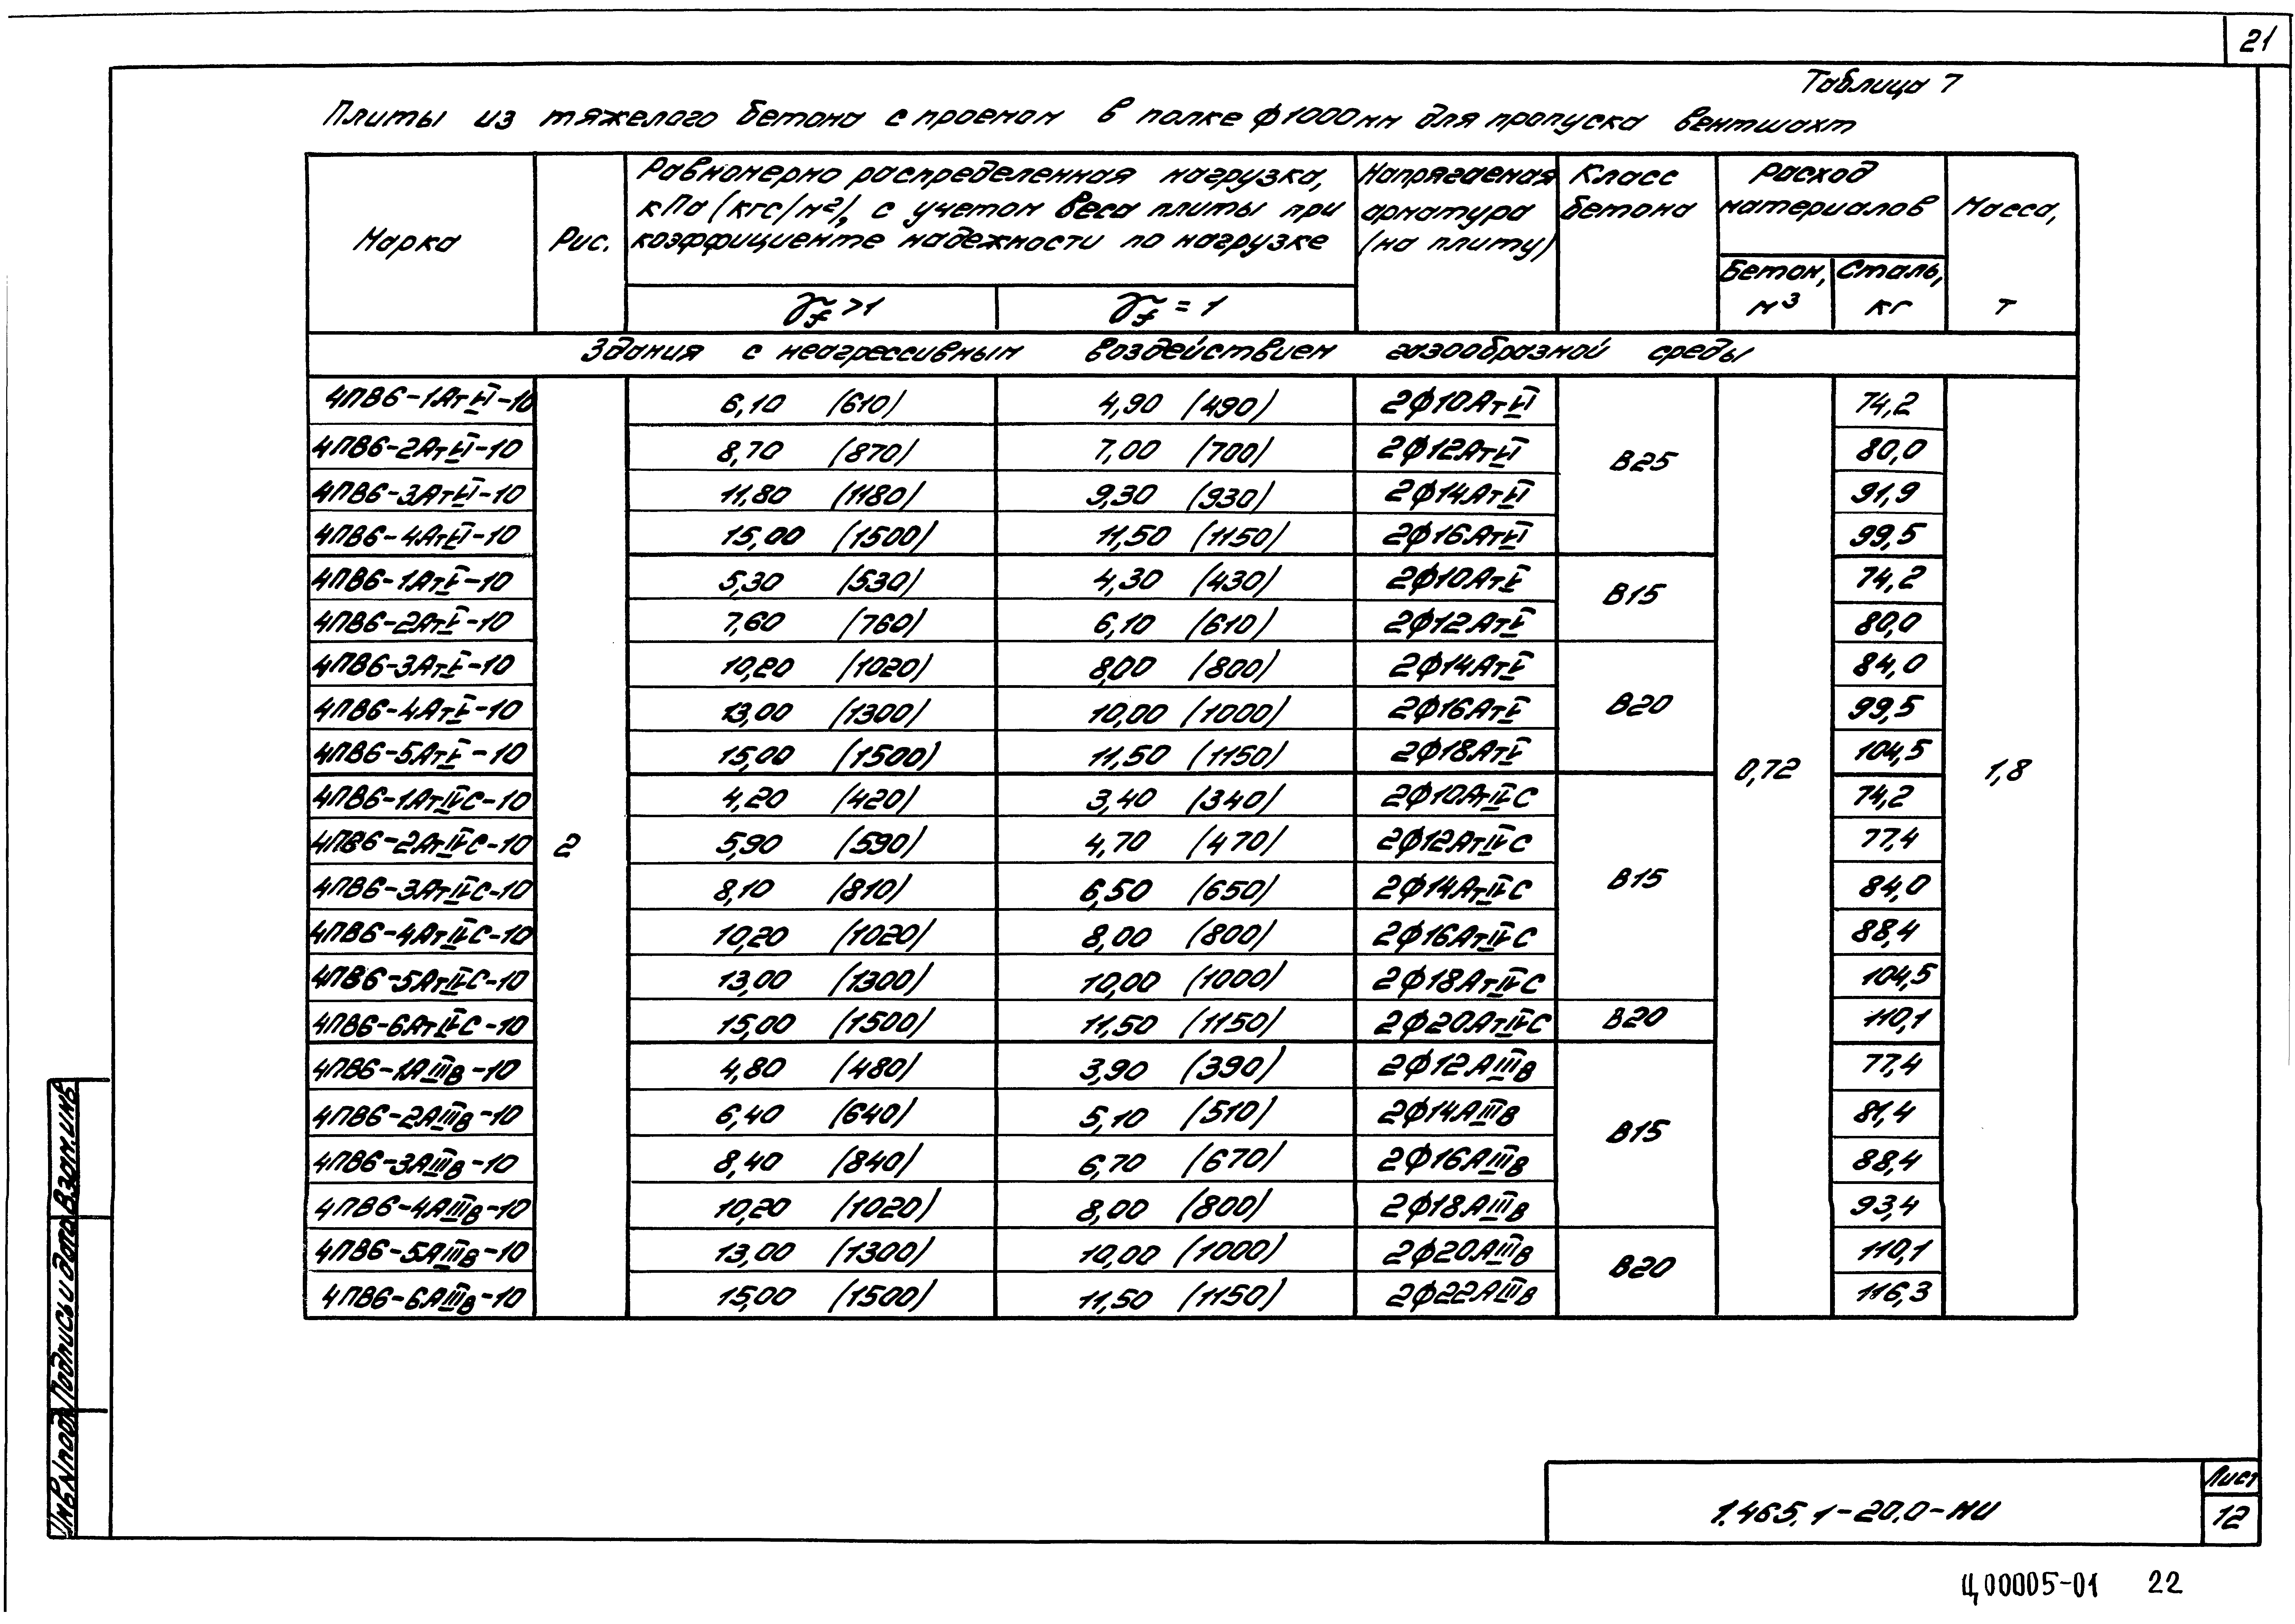 21
Таблица 7
Плиты из тяжелого бетона с проемом в полке ф1000мм для пропуска вентшахт
Марка | Рис. | Равномерно распределенная нагрузка, кПа (кгс/м²), с учетом веса плиты при коэффициенте надежности по нагрузке | Напрягаемая арматура (на плиту) | Класс бетона | Расход материалов | Масса, т
γf >1 | γf = 1 | Бетон, м³ | Сталь, кг
Здания с неагрессивным воздействием газообразной среды
4ПВ6-1АтVI-10 | 6,10 (610) | 4,90 (490) | 2ф10АтVI | 74,2
4ПВ6-2АтVI-10 | 8,70 (870) | 7,00 (700) | 2ф12АтVI | В25 | 80,0
4ПВ6-3АтVI-10 | 11,80 (1180) | 9,30 (930) | 2ф14АтVI | 91,9
4ПВ6-4АтVI-10 | 15,00 (1500) | 11,50 (1150) | 2ф16АтVI | 99,5
4ПВ6-1АтV-10 | 5,30 (530) | 4,30 (430) | 2ф10АтV | В15 | 74,2
4ПВ6-2АтV-10 | 7,60 (760) | 6,10 (610) | 2ф12АтV | 80,0
4ПВ6-3АтV-10 | 10,20 (1020) | 8,00 (800) | 2ф14АтV | 84,0
4ПВ6-4АтV-10 | 13,00 (1300) | 10,00 (1000) | 2ф16АтV | В20 | 99,5
4ПВ6-5АтV-10 | 15,00 (1500) | 11,50 (1150) | 2ф18АтV | 0,72 | 104,5 | 1,8
4ПВ6-1АтIVС-10 | 4,20 (420) | 3,40 (340) | 2ф10АтIVС | 74,2
4ПВ6-2АтIVС-10 | 2 | 5,90 (590) | 4,70 (470) | 2ф12АтIVС | 77,4
4ПВ6-3АтIVС-10 | 8,10 (810) | 6,50 (650) | 2ф14АтIVС | В15 | 84,0
4ПВ6-4АтIVС-10 | 10,20 (1020) | 8,00 (800) | 2ф16АтIVС | 88,4
4ПВ6-5АтIVС-10 | 13,00 (1300) | 10,00 (1000) | 2ф18АтIVС | 104,5
4ПВ6-6АтIVС-10 | 15,00 (1500) | 11,50 (1150) | 2ф20АтIVС | В20 | 110,1
4ПВ6-1АIIIв-10 | 4,80 (480) | 3,90 (390) | 2ф12АIIIв | 77,4
4ПВ6-2АIIIв-10 | 6,40 (640) | 5,10 (510) | 2ф14АIIIв | В15 | 81,4
4ПВ6-3АIIIв-10 | 8,40 (840) | 6,70 (670) | 2ф16АIIIв | 88,4
4ПВ6-4АIIIв-10 | 10,20 (1020) | 8,00 (800) | 2ф18АIIIв | 93,4
4ПВ6-5АIIIв-10 | 13,00 (1300) | 10,00 (1000) | 2ф20АIIIв | В20 | 110,1
4ПВ6-6АIIIв-10 | 15,00 (1500) | 11,50 (1150) | 2ф22АIIIв | 116,3
Инв.Nподл
Подпись и дата
Взам.инв
1.465.1-20.0-НИ
Лист
12
Ц00005-01 22